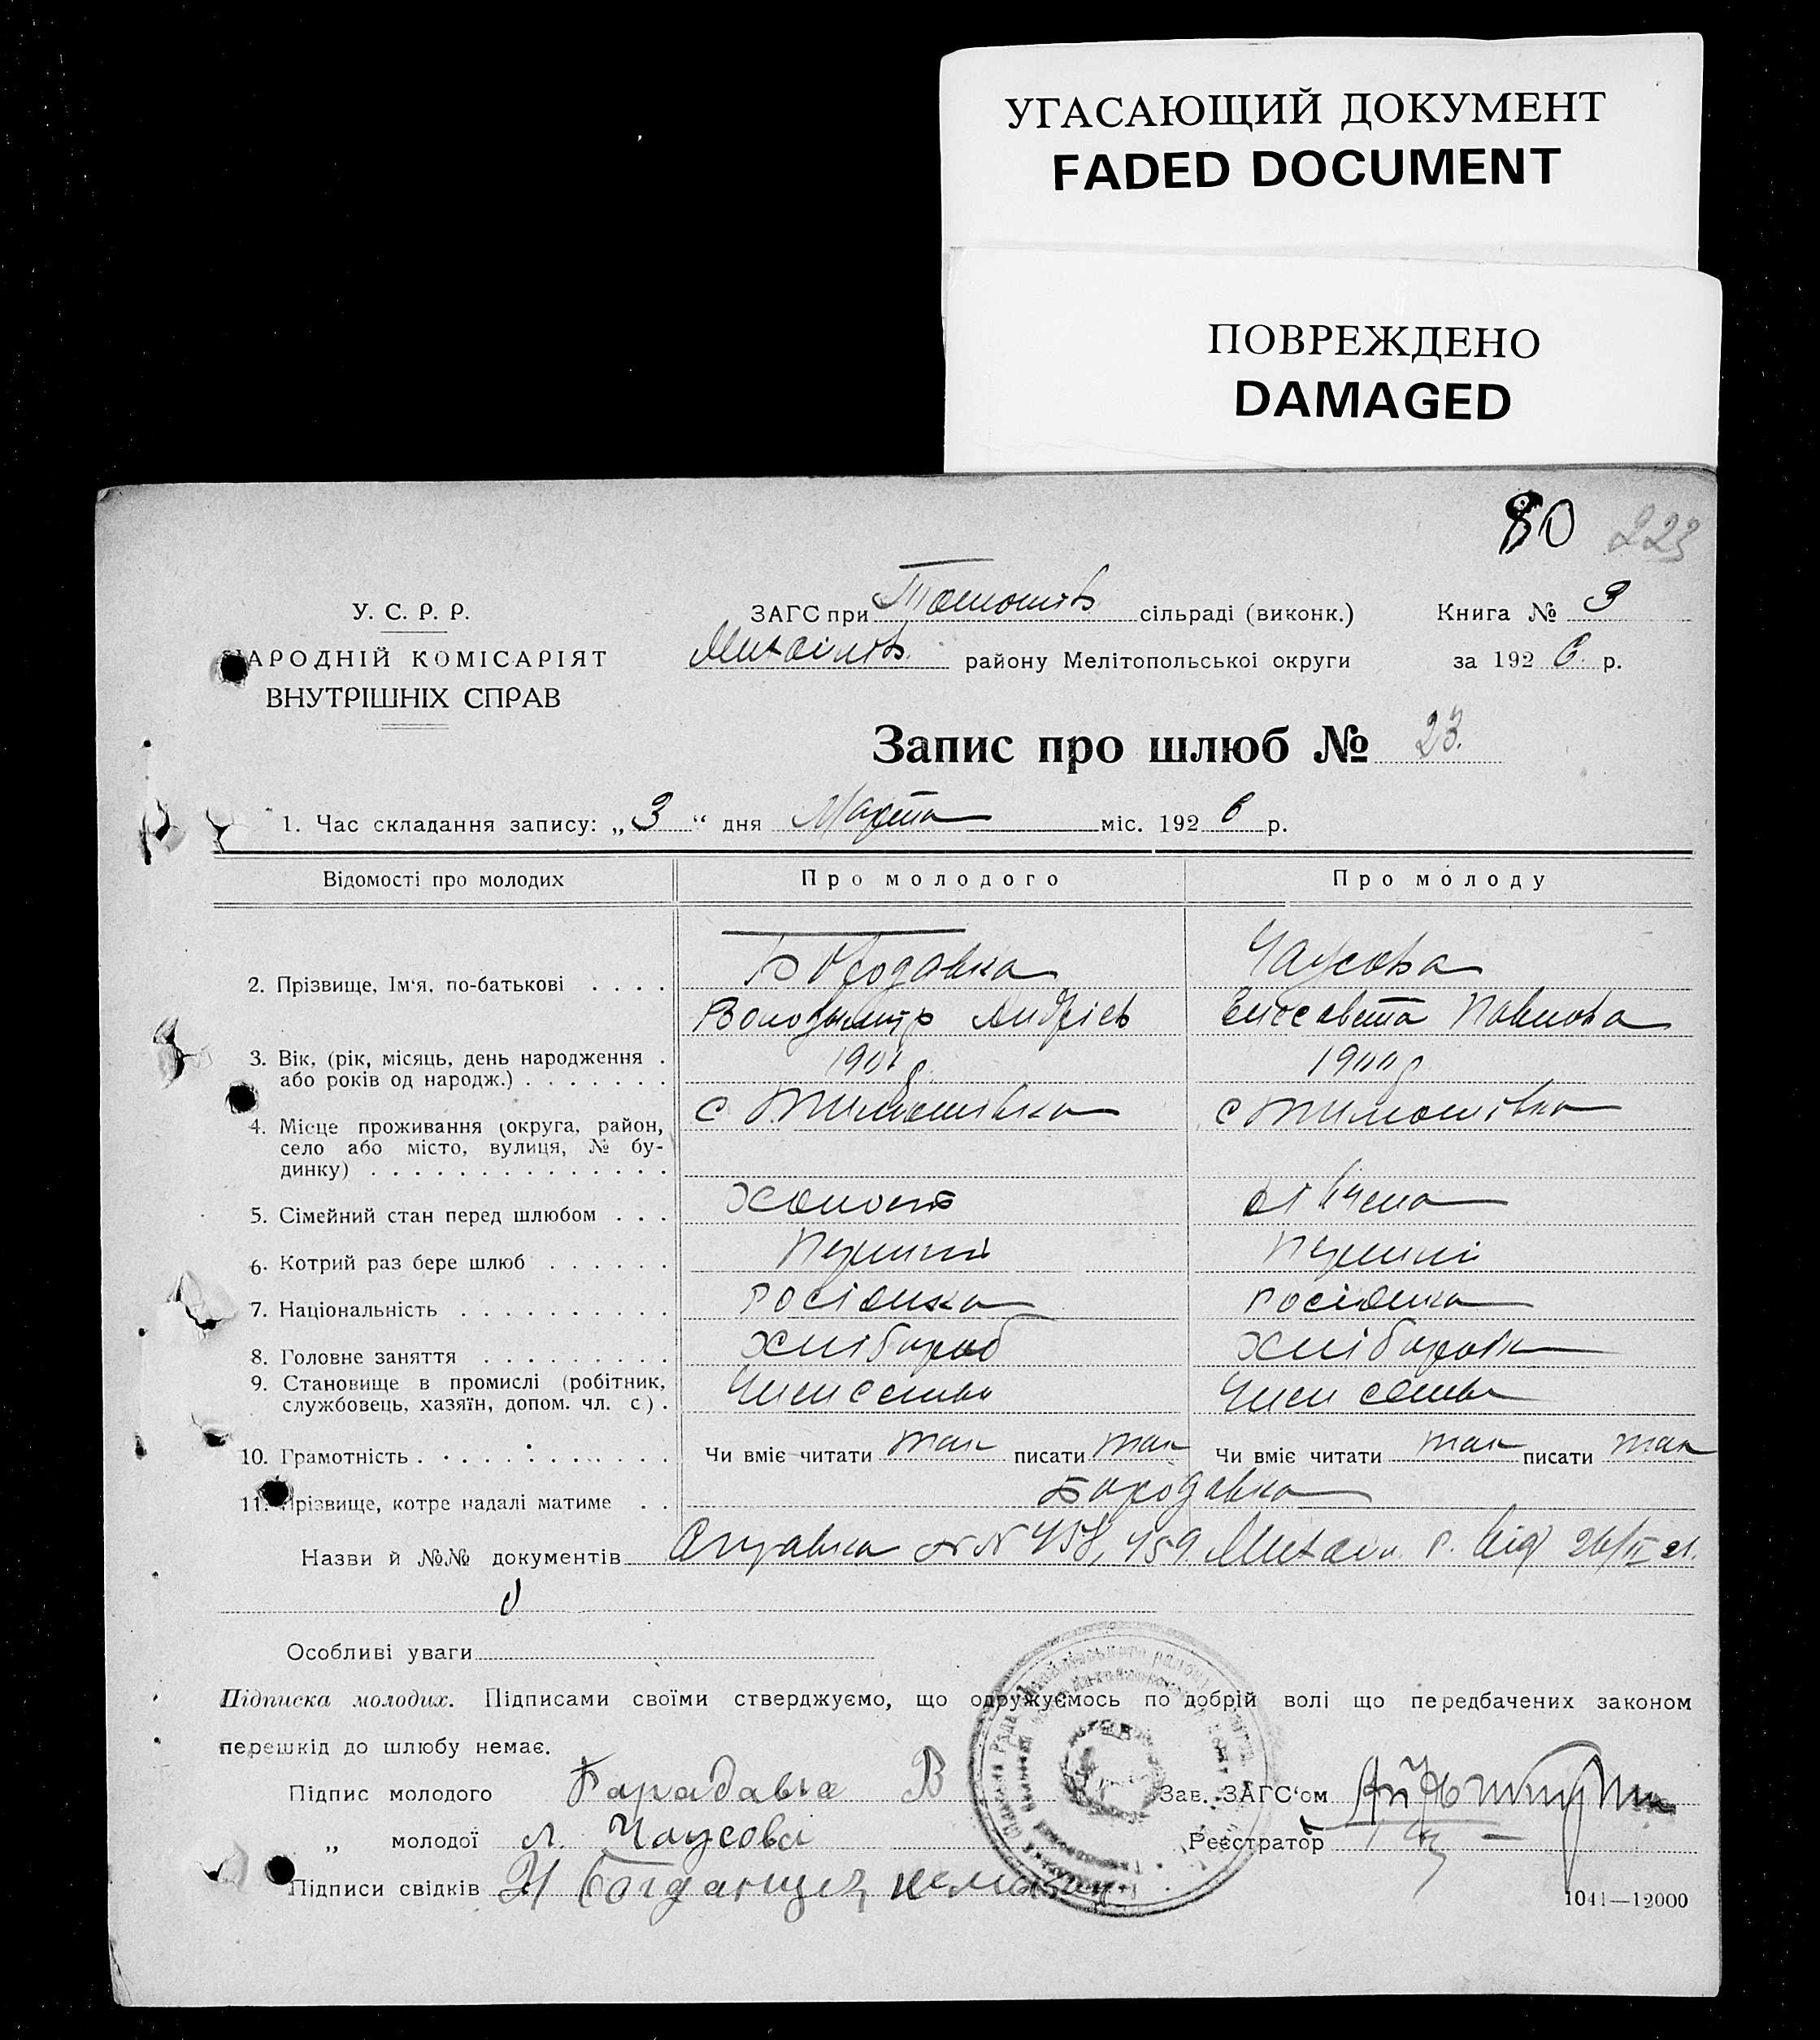 УГАСАЮЩИЙ ДОКУМЕНТ
FADED DOCUMENT
ПОВРЕЖДЕНО
DAMAGED
80 223
У. С. Р. Р.
НАРОДНІЙ КОМІСАРІЯТ
ВНУТРІШНІХ СПРАВ
ЗАГС при сільраді (виконк.)
Михайлів. району Мелітопольської округи
Книга № 3
за 1926 р.
Запис про шлюб № 23.
1. Час складання запису: „3“ дня Марта міс. 1926 р.
Відомості про молодих Про молодого Про молоду
2. Прізвище, Ім'я, по-батькові . . . . Бородавка Чаусова
Володимир Андрієв Елисавета Павлова
3. Вік, (рік, місяць, день народження . або років од народж.) . . . . . . . 1901 р. 1900 р
4. Місце проживання (округа, район, с. Тимошівка с Тимошівка
село або місто, вулиця, № бу-
динку) . . . . . . . . . . . . . .
5. Сімейний стан перед шлюбом . . . Холост дівчена
6. Котрий раз бере шлюб . . . . . . Перший Перший
7. Національність . . . . . . . . . Росіянка Росіянка
8. Головне заняття . . . . . . . . . Хлібороб Хлібороб
9. Становище в промислі (робітник, Член семьи Член семьи
службовець, хазяїн, допом. чл. с) .
10. Грамотність . . . . . . . . . . . Чи вміє читати так писати так Чи вміє читати так писати так
11. Прізвище, котре надалі матиме . . Бородавка
Назви й №№ документів Справка N 458, 459 Михайл. Р. від 26/II
Особливі уваги
Підписка молодих. Підписами своїми стверджуємо, що одружуємось по добрій волі що передбачених законом
перешкід до шлюбу немає.
Підпис молодого Барадавка В Зав. ЗАГС'ом
„ молодої Л. Чаусова Реєстратор
Підписи свідків
1041—12000